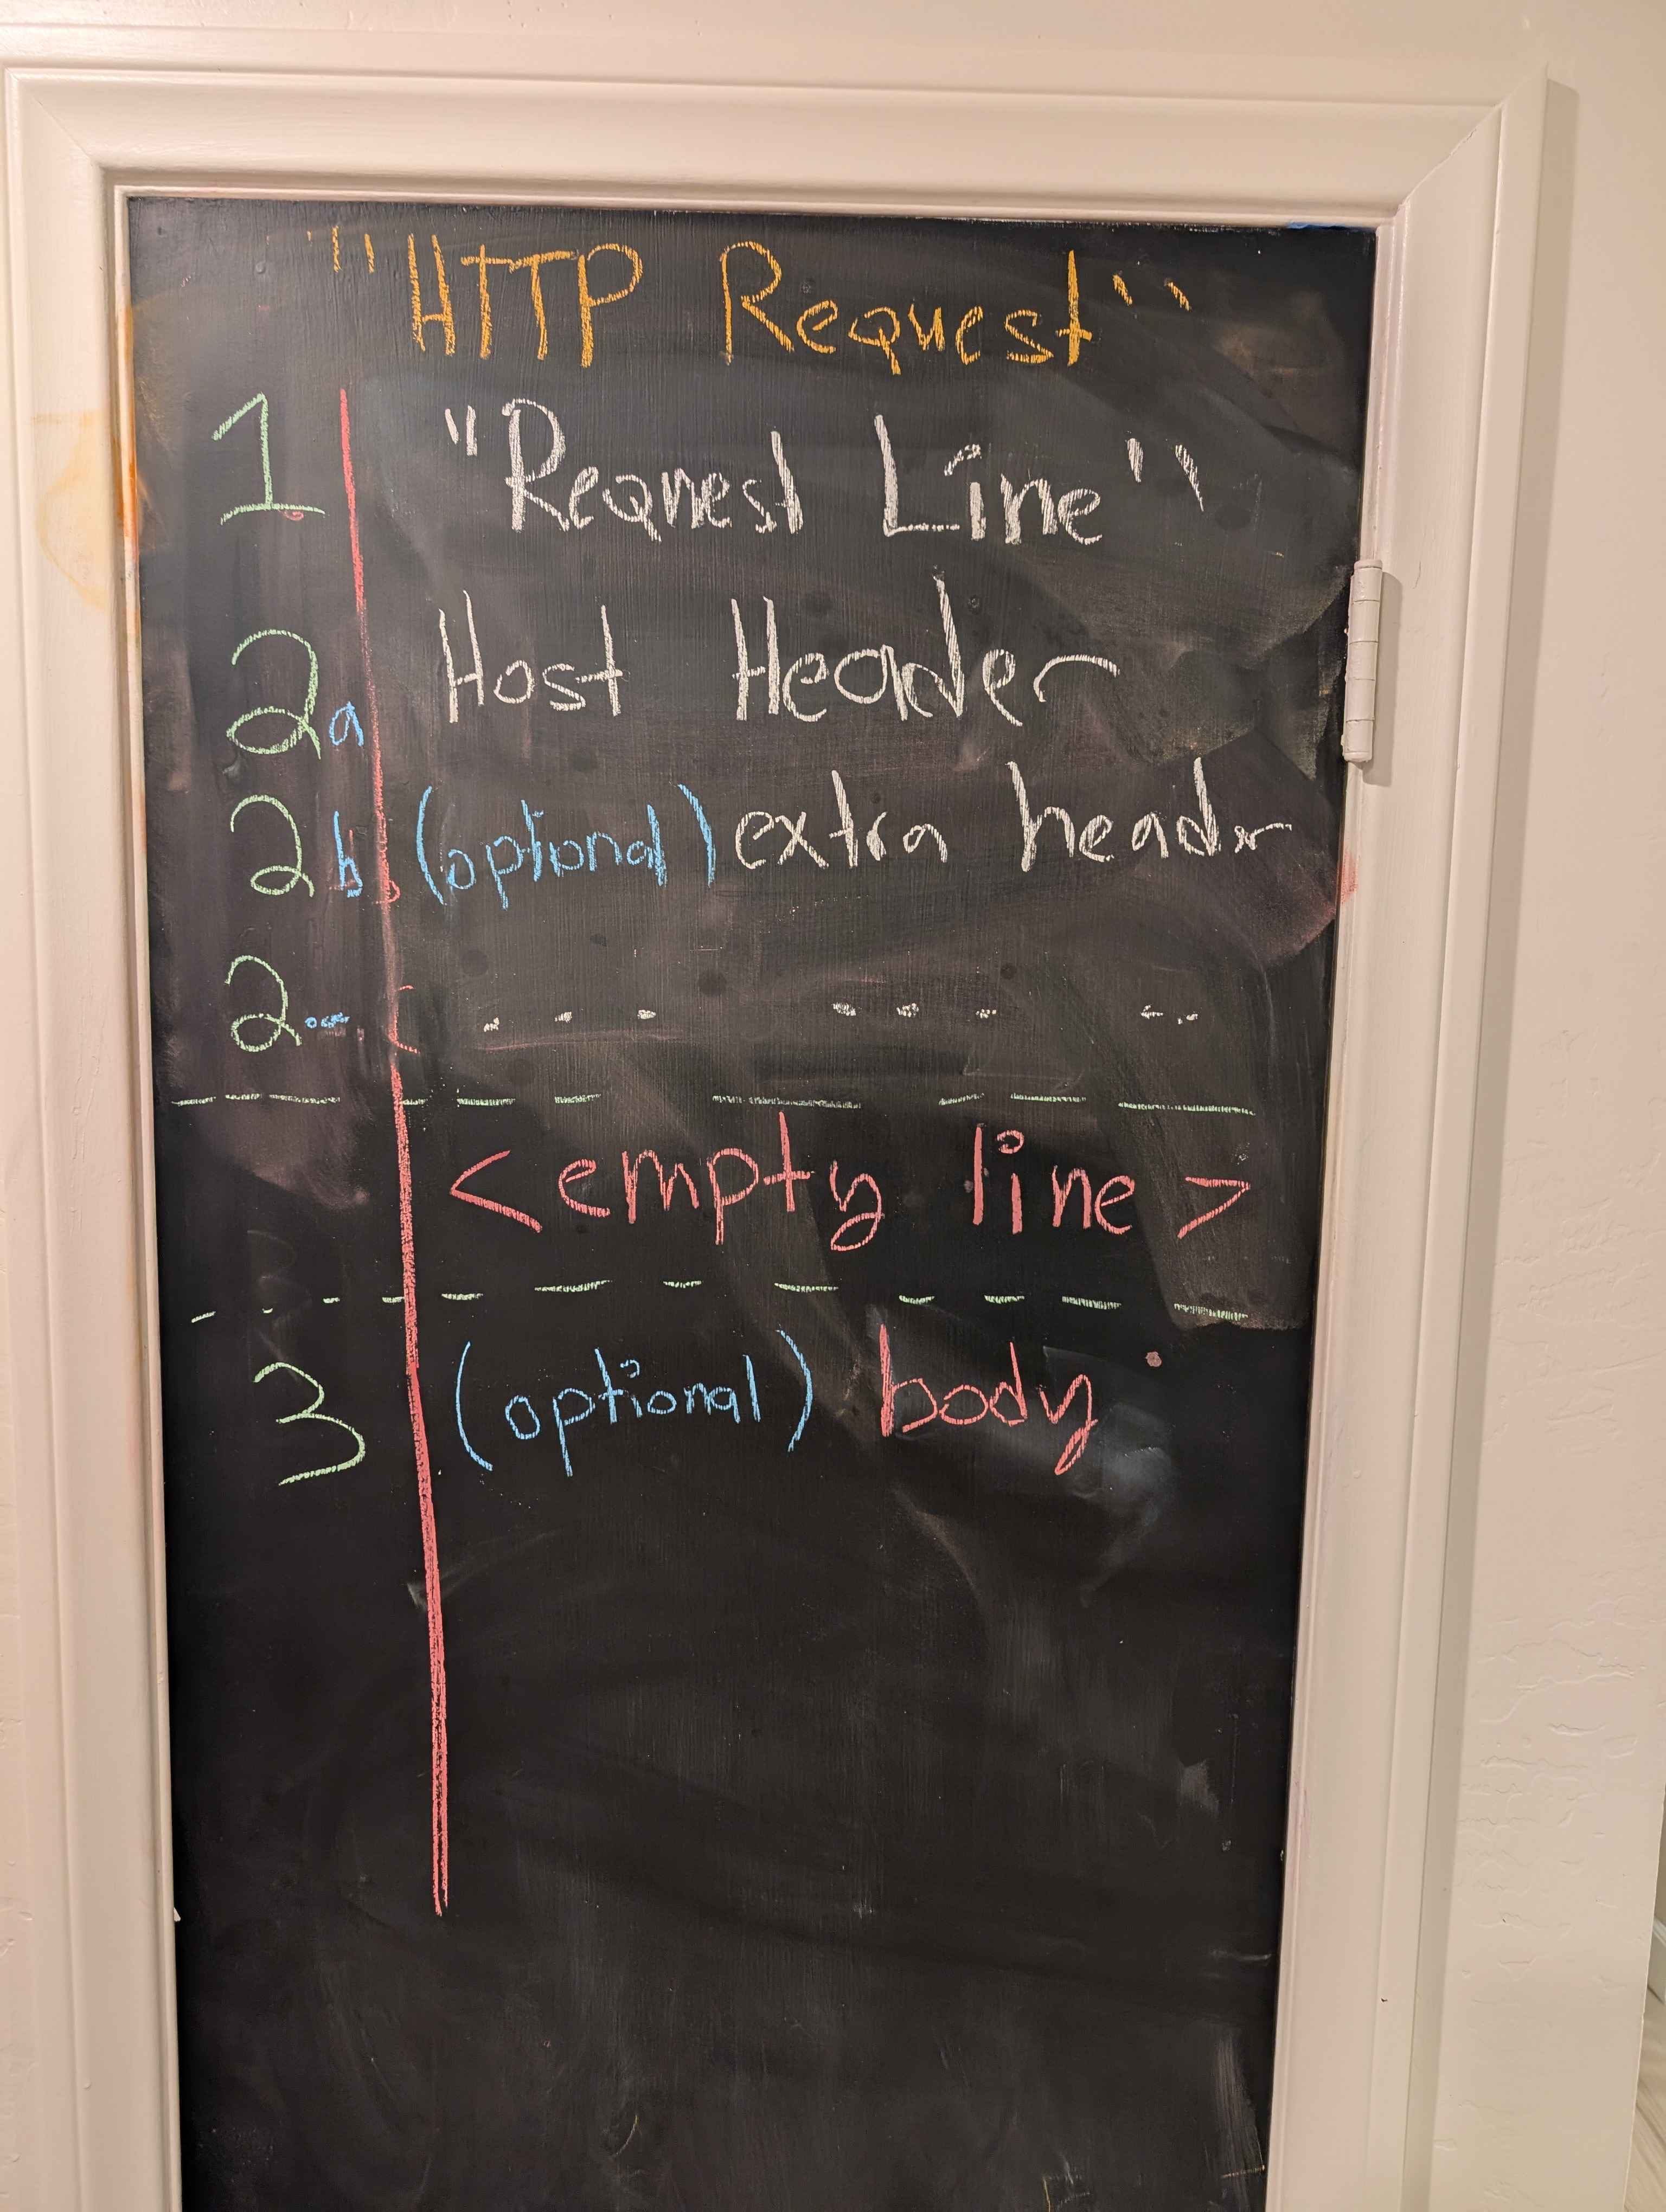 "HTTP Request"
1 "Request Line"
2a Host Header
2b (optional) extra header
2... ... ... ..
<empty line>
3 (optional) body